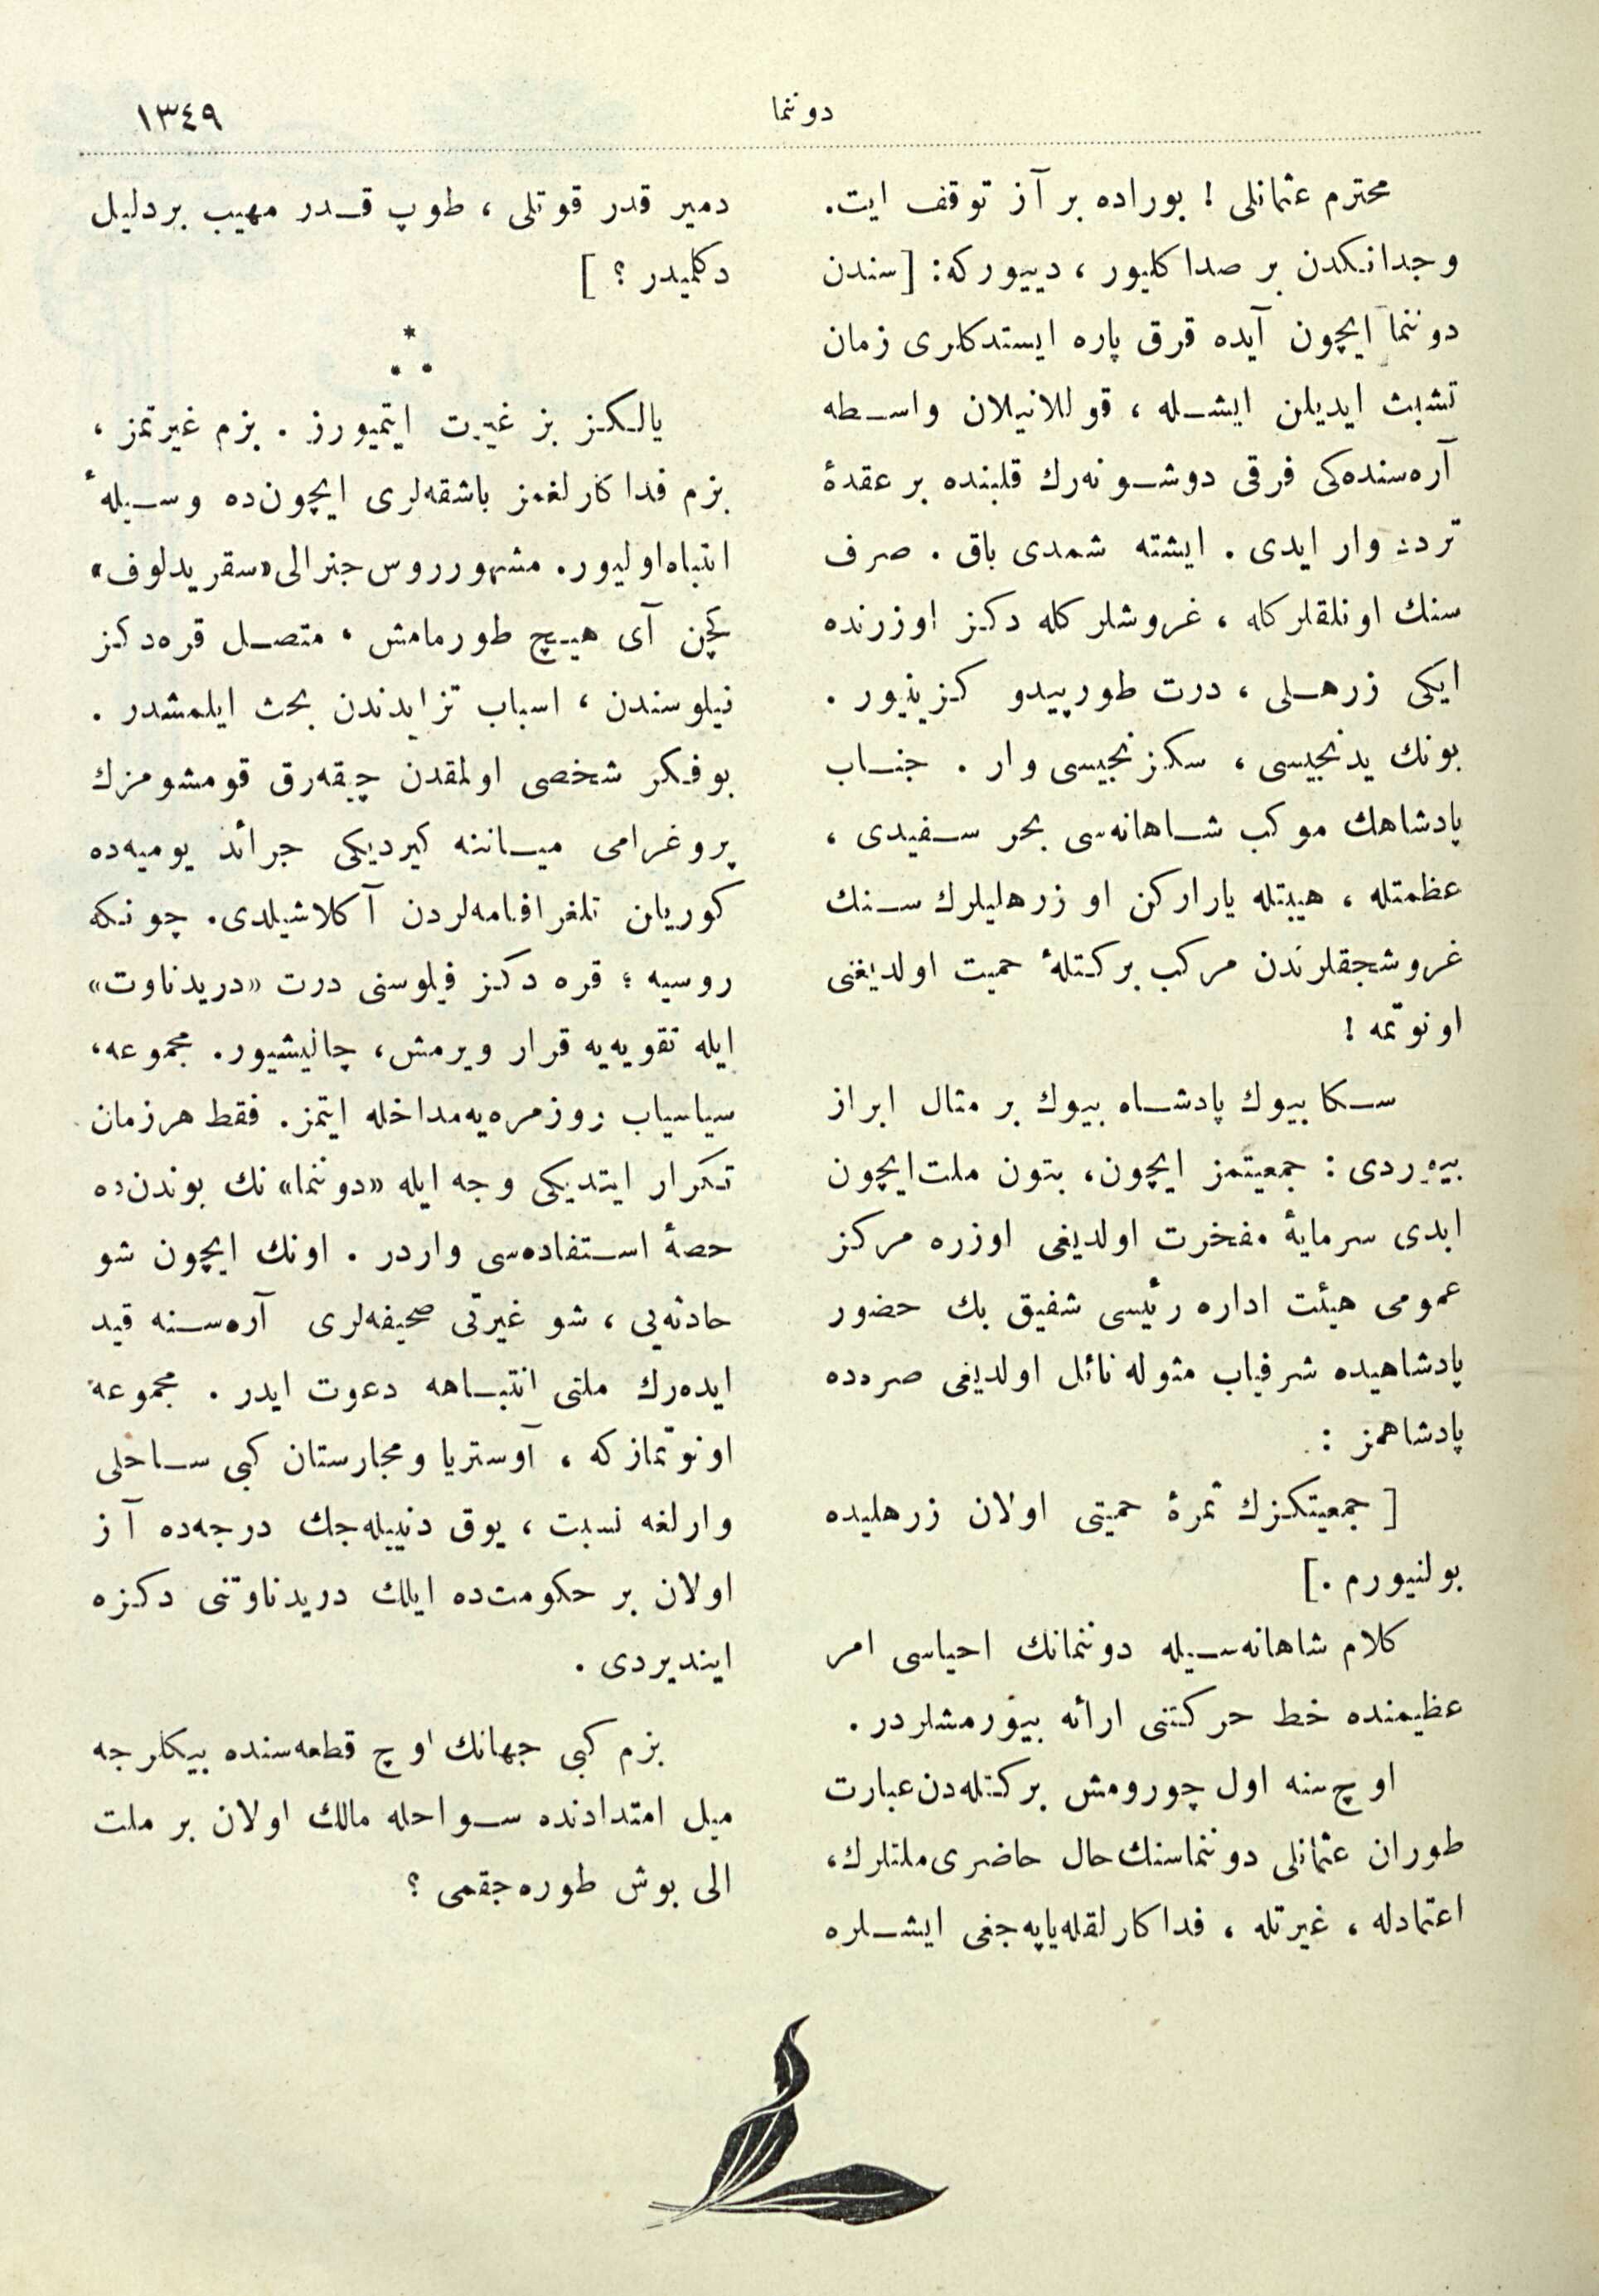 دوننما
١٣٤٩
محترم عثمانلی ! بوراده بر آز توقف ایت.
وجدانكدن بر صدا كلیور ، دییوركه: [سندن
دوننما ایچون آیده قرق پاره ایستدكلری زمان
تشبث ایدیلن ایشله ، قوللانیلان واسطه
آره‌سنده‌كی فرقی دوشونه‌رك قلبنده بر عقدۀ
تردد وار ایدی . ایشته شمدی باق . صرف
سنك اونلقلركله ، غروشلركله دكز اوزرنده
ایكی زرهلی ، درت طورپیدو كزینیور .
بونك یدنجیسی ، سكزنجیسی وار . جناب
پادشاهك موكب شاهانه‌سی بحر سفیدی ،
عظمتله ، هیبتله یاراركن او زرهلیلرك سنك
غروشجقلرندن مركب بركتلۀ حمیت اولدیغنی
اونوتمه !
سكا بیوك پادشاه بیوك بر مثال ابراز
بیوردی : جمعیتمز ایچون، بتون ملت ایچون
ابدی سرمایۀ مفخرت اولدیغی اوزره مركز
عمومی هیئت اداره رئیسی شفیق بك حضور
پادشاهیده شرفیاب مثوله نائل اولدیغی صرده
پادشاهمز :
[ جمعیتكزك ثمرۀ حمیتی اولان زرهلیده
بولنیورم .]
كلام شاهانه‌سیله دوننمانك احیاسی امر
عظیمنده خط حركتنی ارائه بیورمشلردر .
اوچ سنه اول چورومش بركتله‌دن عبارت
طوران عثمانلی دوننماسنك حال حاضری ملتلرك،
اعتمادله ، غیرتله ، فداكارلقله یاپه‌جغی ایشلره
دمیر قدر قوتلی ، طوپ قدر مهیب بردلیل
دكلمیدر ؟ ]
*
• •
یالكز بز غیرت ایتمیورز . بزم غیرتمز ،
بزم فداكارلغمز باشقه‌لری ایچون‌ده وسیلۀ
انتباه اولیور. مشهور روس جنرالی «سقریدلوف»
كچن آی هیچ طورمامش ، متصل قره‌دكز
فیلوسندن ، اسباب تزایدندن بحث ایلمشدر .
بوفكر شخصی اولمقدن چیقه‌رق قومشومزك
پروغرامی میاننه كیردیكی جرائد یومیه‌ده
كوریلن تلغرافنامه‌لردن آكلاشیلدی. چونكه
روسیه ؛ قره دكز فیلوسنی درت «دریدناوت»
ایله تقویه‌یه قرار ویرمش، چالیشیور. مجموعه،
سیاسیاب روزمره‌یه مداخله ایتمز. فقط هر زمان
تكرار ایتدیكی وجه ایله «دوننما» نك بوندن‌ده
حصۀ استفاده‌سی واردر . اونك ایچون شو
حادثه‌یی ، شو غیرتی صحیفه‌لری آره‌سنه قید
ایده‌رك ملتی انتباهه دعوت ایدر . مجموعه
اونوتمازكه ، آوستریا و مجارستان كبی ساحلی
وارلغه نسبت ، یوق دنییله‌جك درجه‌ده آز
اولان بر حكومت‌ده ایلك دریدناوتنی دكزه
ایندیردی .
بزم كبی جهانك اوچ قطعه‌سنده بیكلرجه
میل امتدادنده سواحله مالك اولان بر ملت
الی بوش طوره‌جقمی ؟